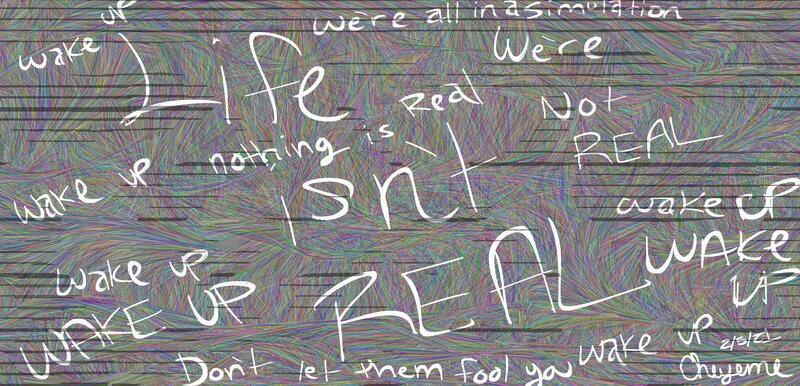 wake UP
We're all in a simulation
Life
We're
Not
REAL
nothing is Real
isn't
wake UP
wake UP
WAKE
UP
wake UP
WAKE UP
REAL
Don't let them fool you
wake UP
2/5/21
Cheyenne